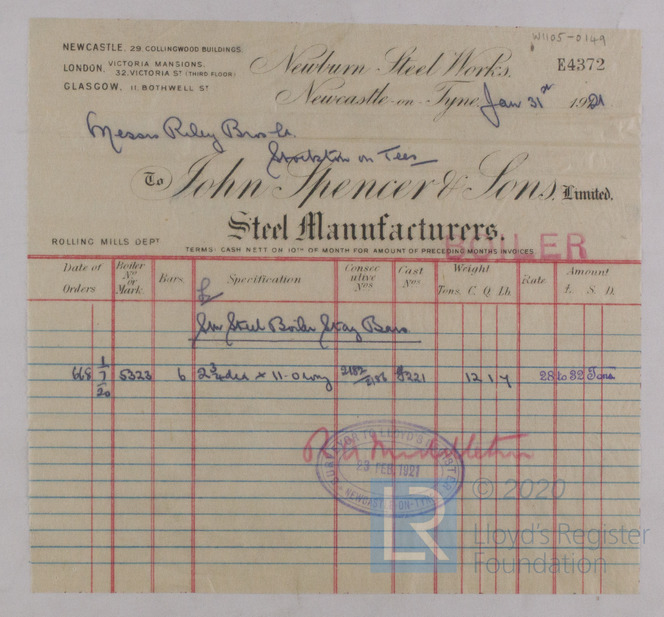 W1105-0149
NEWCASTLE, 29 COLLINGWOOD BUILDINGS.
LONDON, VICTORIA MANSIONS,
32, VICTORIA ST (THIRD FLOOR)
GLASGOW, 11 BOTHWELL ST
Newburn Steel Works,
E4372
Newcastle-on-Tyne, Jan 31st 1921
Messrs Riley Bros Ld.
Stockton on Tees
To John Spencer & Sons, Limited.
Steel Manufacturers.
BOILER
ROLLING MILLS DEPT
TERMS: CASH NETT ON 10TH OF MONTH FOR AMOUNT OF PRECEDING MONTHS INVOICES
Date of Orders Boiler No or Mark. Bars. Specification Consecutive Nos Cast Nos. Weight Tons. C. Q. Lb. Rate Amount £. S. D.
Steel Boiler Stay Bars
668 1/7/20 5323 6 2 3/4 dia × 11-0 long 2182/2186 12 1 7 28 to 32 Tons
R. A. Middleton
SURVEYOR TO LLOYD'S REGISTER
23 FEB 1921
NEWCASTLE-ON-TYNE
LR © 2020
Lloyd's Register
Foundation